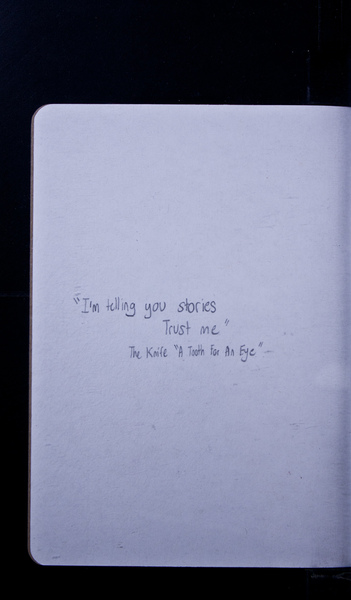 "I'm telling you stories
Trust me"
The Knife "A Tooth For An Eye"